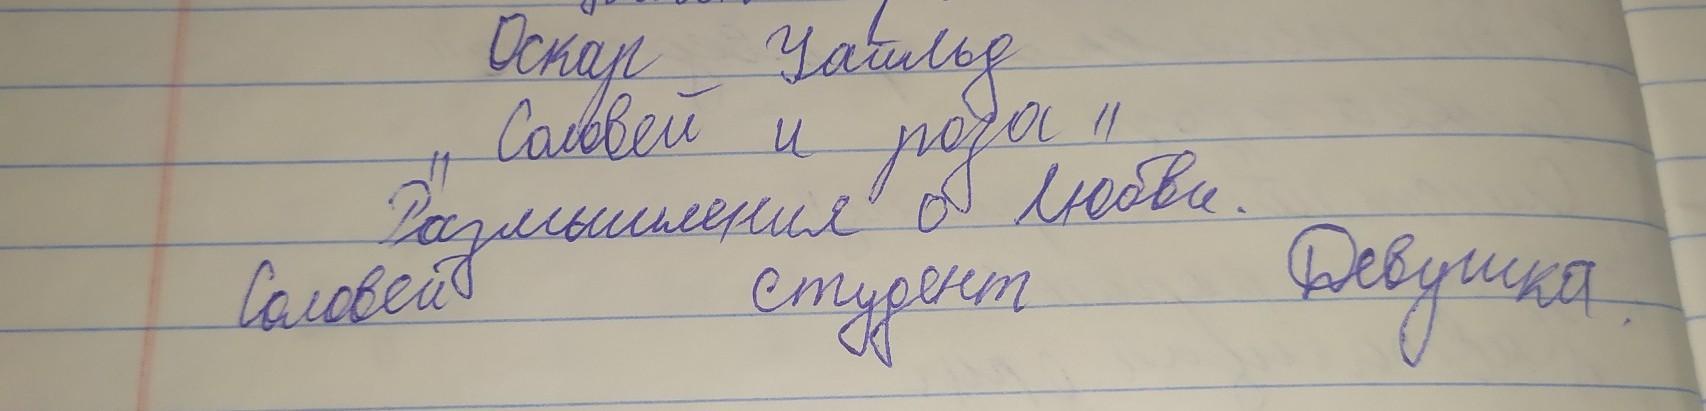 Оскар Уайльд
"Соловей и роза"
Размышления о любви.
Соловей студент Девушка.